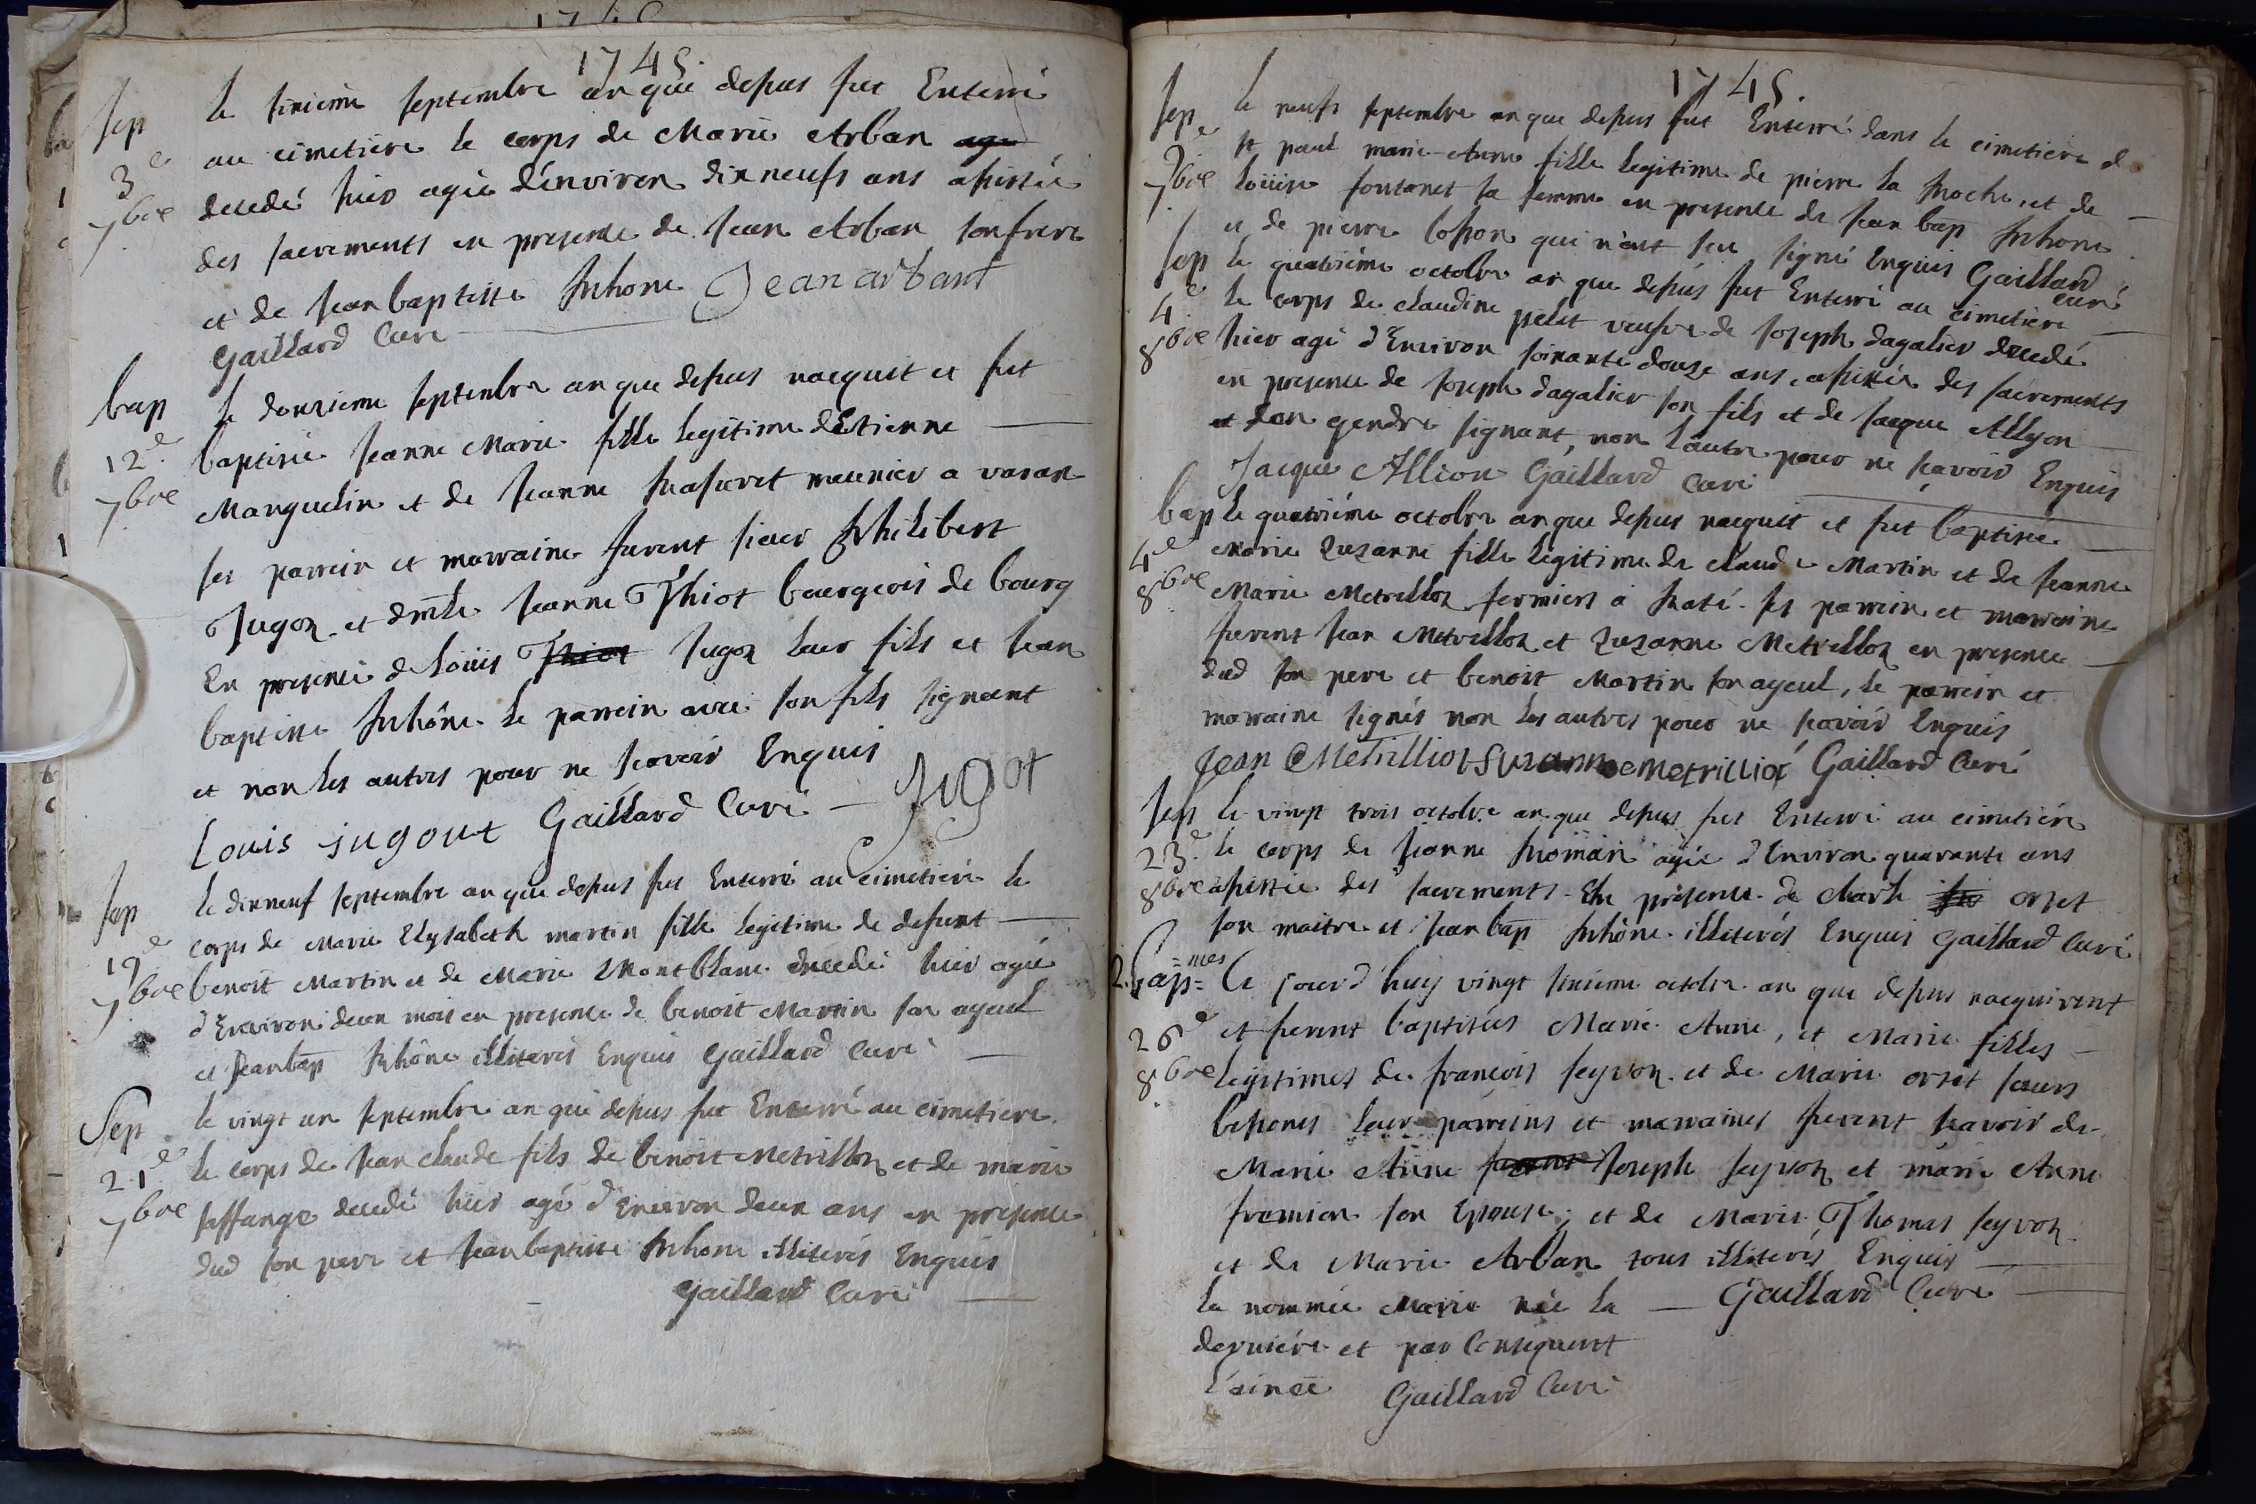 1745.
Sep
3e
7bre
le sixieme septembre an que depus fut Enterré
au cimetiere le corps de Marie Arban
decedé hier agée d'énviron dixneufs ans assistée
des sacrements en presence de Jean Arban son frere
et de Jean baptiste Jean arbant
Gaillard Curé
bap
12e
7bre
le douzieme septembre an que depus nacquit et fut
baptisée Jeanne Marie fille legitime d'Etienne
Manguelin et de Jeanne meunier a varan
ses parrein et marraine furent sieur Philibert
Jugon et dmlle Jeanne Thiot bourgeois de bourg
En presence de Loüis Jugon leur fils et Jean
baptiste le parrein avec son fils signant
et non les autres pour ne scavoir Enquis
Louis jugont Gaillard Curé Jugot
Sep
19e
7bre
le dixneuf septembre an que depus fut Enterré au cimetiere le
corps de Marie Elysabeth martin fille legitime de defunt
benoit Martin et de Marie Montblanc decedée hier agée
d'Environ deux mois en presence de benoit Martin son ayeul
et Jean bap illiterés Enquis Gaillard Curé
Sep
21e
7bre
le vingt un septembre an que depus fut Enterré au cimetiere
le corps de Jean claude fils de benoit Metrillon et de marie
decedé hier agé d'Environ deux ans en presence
dud son pere et Jean baptiste illiterés Enquis
Gaillard Curé
1745.
Sep
9e
7bre
le neufs septembre an que depus fut Enterré dans le cimetiere de
st paul marie-Anne fille legitime de pierre la et de
Loüise fontanet sa femme en presence de Jean bap
et de pierre qui n'ont sceu signé Enquis Gaillard
curé
Sep
4e
8bre
le quatriéme octobre an que depus fut Enterré au cimetiere
le corps de claudine petit veufve de Joseph dagalier decedé
hier agé d'Environ soixante douze ans, assistée des sacrements
en presence de Joseph dagalier son fils et de Jacque Allyon
et son gendre signant, non l'autre pour ne scavoir Enquis
Jacque Allion Gaillard Curé
bap
4e
8bre
le quatriéme octobre an que depus nacquit et fut baptisée
Marie Suzanne fille legitime de claude Martin et de Jeanne
Marie Metrillon fermiers a ses parrein et marraine
furent Jean Metrillon et Suzanne Metrillon en presence
dud son pere et benoit Martin son ayeul, le parrein et
marraine signés non les autres pour ne scavoir Enquis
Jean Metrilliot Suzanne metrilliot Gaillard Curé
Sep
23e
8bre
le vingt trois octobre an que depus fut Enterré au cimetiére
le corps de Jeanne agée d'Environ quarante ans
assistée des sacrements En présence de Mark orset
son maitre et Jean bap illiterés Enquis Gaillard Curé
2. bapmes
26e
8bre
Ce jourd'huy vingt sixieme octobre an que depus nacquirent
et furent baptisées Marie Anne, et Marie filles
legitimes de francois seyvon et de Marie orset sœurs
bessones leur parreins et marraines furent scavoir de
Marie Anne Joseph seyvon et marie Anne
son Epouse; et de Marie Thomas seyvon
et de Marie Arban tous illiterés Enquis
la nommée Marie née la Gaillard Curé
derniére et par Consequent
l'ainée Gaillard Curé